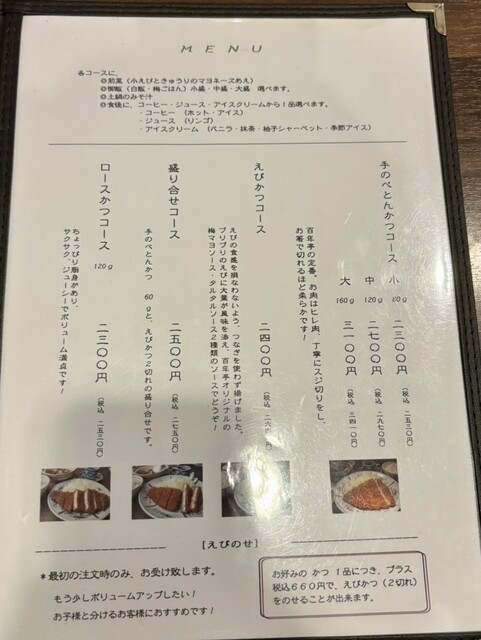 MENU
各コースに、
◎前菜（小えびときゅうりのマヨネーズあえ）
◎御飯（白飯・梅ごはん）小盛・中盛・大盛 選べます。
◎土鍋のみそ汁
◎食後に、コーヒー・ジュース・アイスクリームから1品選べます。
・コーヒー （ホット・アイス）
・ジュース （リンゴ）
・アイスクリーム （バニラ・抹茶・柚子シャーベット・季節アイス）
手のべとんかつコース
小 80g 二三〇〇円 （税込 二五三〇円）
中 120g 二七〇〇円 （税込 二九七〇円）
大 160g 三一〇〇円 （税込 三四一〇円）
百年亭の定番。お肉はヒレ肉、丁寧にスジ切りをし、
お箸で切れるほど柔らかです！
えびかつコース
二四〇〇円 （税込 二六
えびの食感を損なわないよう、つなぎを使わず揚げました。
プリプリのえびに大葉が風味を添え、百年亭オリジナルの
梅マヨソース・タルタルソース2種類のソースでどうぞ！
盛り合せコース
二五〇〇円 （税込 二七五〇円）
手のべとんかつ 60gと、えびかつ2切れの盛り合せです。
ロースかつコース
120g 二三〇〇円 （税込 二五三〇円）
ちょっぴり脂身があり、
サクサク、ジューシーでボリューム満点です！
[えびのせ]
*最初の注文時のみ、お受け致します。
もう少しボリュームアップしたい！
お子様と分けるお客様におすすめです！
お好みの かつ 1品につき、プラス
税込660円で、えびかつ（2切れ）
をのせることが出来ます。